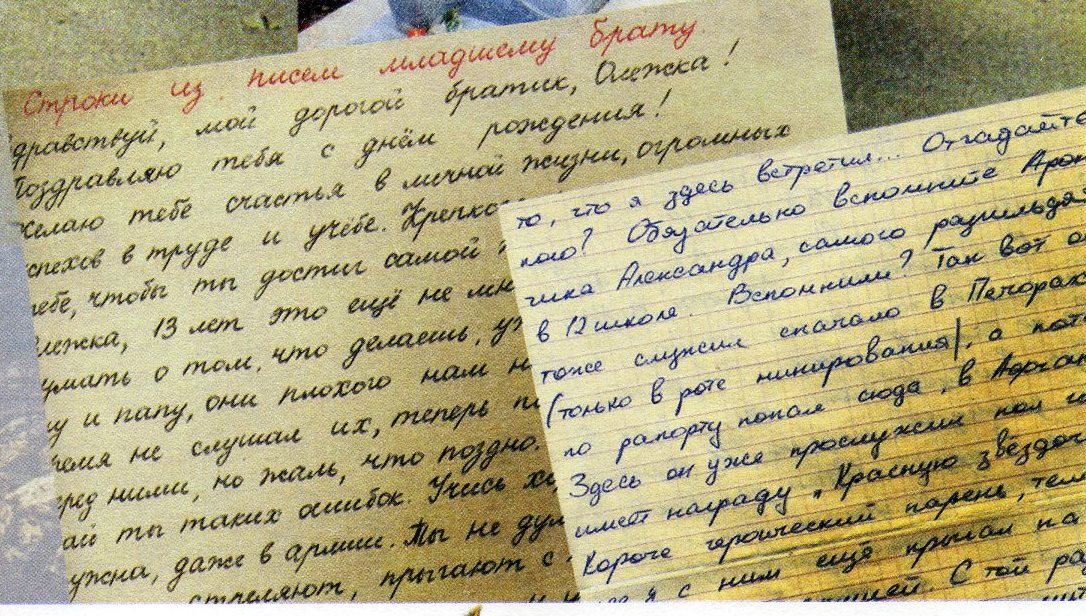 Строки из писем младшему брату.
дравствуй, мой дорогой братик, Олежка!
Поздравляю тебя с днём рождения!
желаю тебе счастья в личной жизни, огромных
спехов в труде и учёбе. Крепкого
ебе, чтобы ты достиг самой
лежка, 13 лет это ещё не мн
умать о том, что делаешь, у
у и папу, они плохого нам н
ремя не слушал их, теперь
ред ними, но жаль, что поздно.
ай ты таких ошибок. Учись хо
ужна, даже в армии. Ты не дум
стреляют, прыгают с
то, что я здесь встретил... Отгадайте
кого? Обязательно вспомните Арон
чика Александра, самого разгильдя
в 12 школе. Вспомнили? Так вот он
тоже служил сначала в Печорах
(только в роте минирования), а пот
по рапорту попал сюда, в Афган
Здесь он уже прослужил пол
имеет награду „Красную звёздоч
Короче героический парень, тем
с ним ещё прыгал на
С той ра